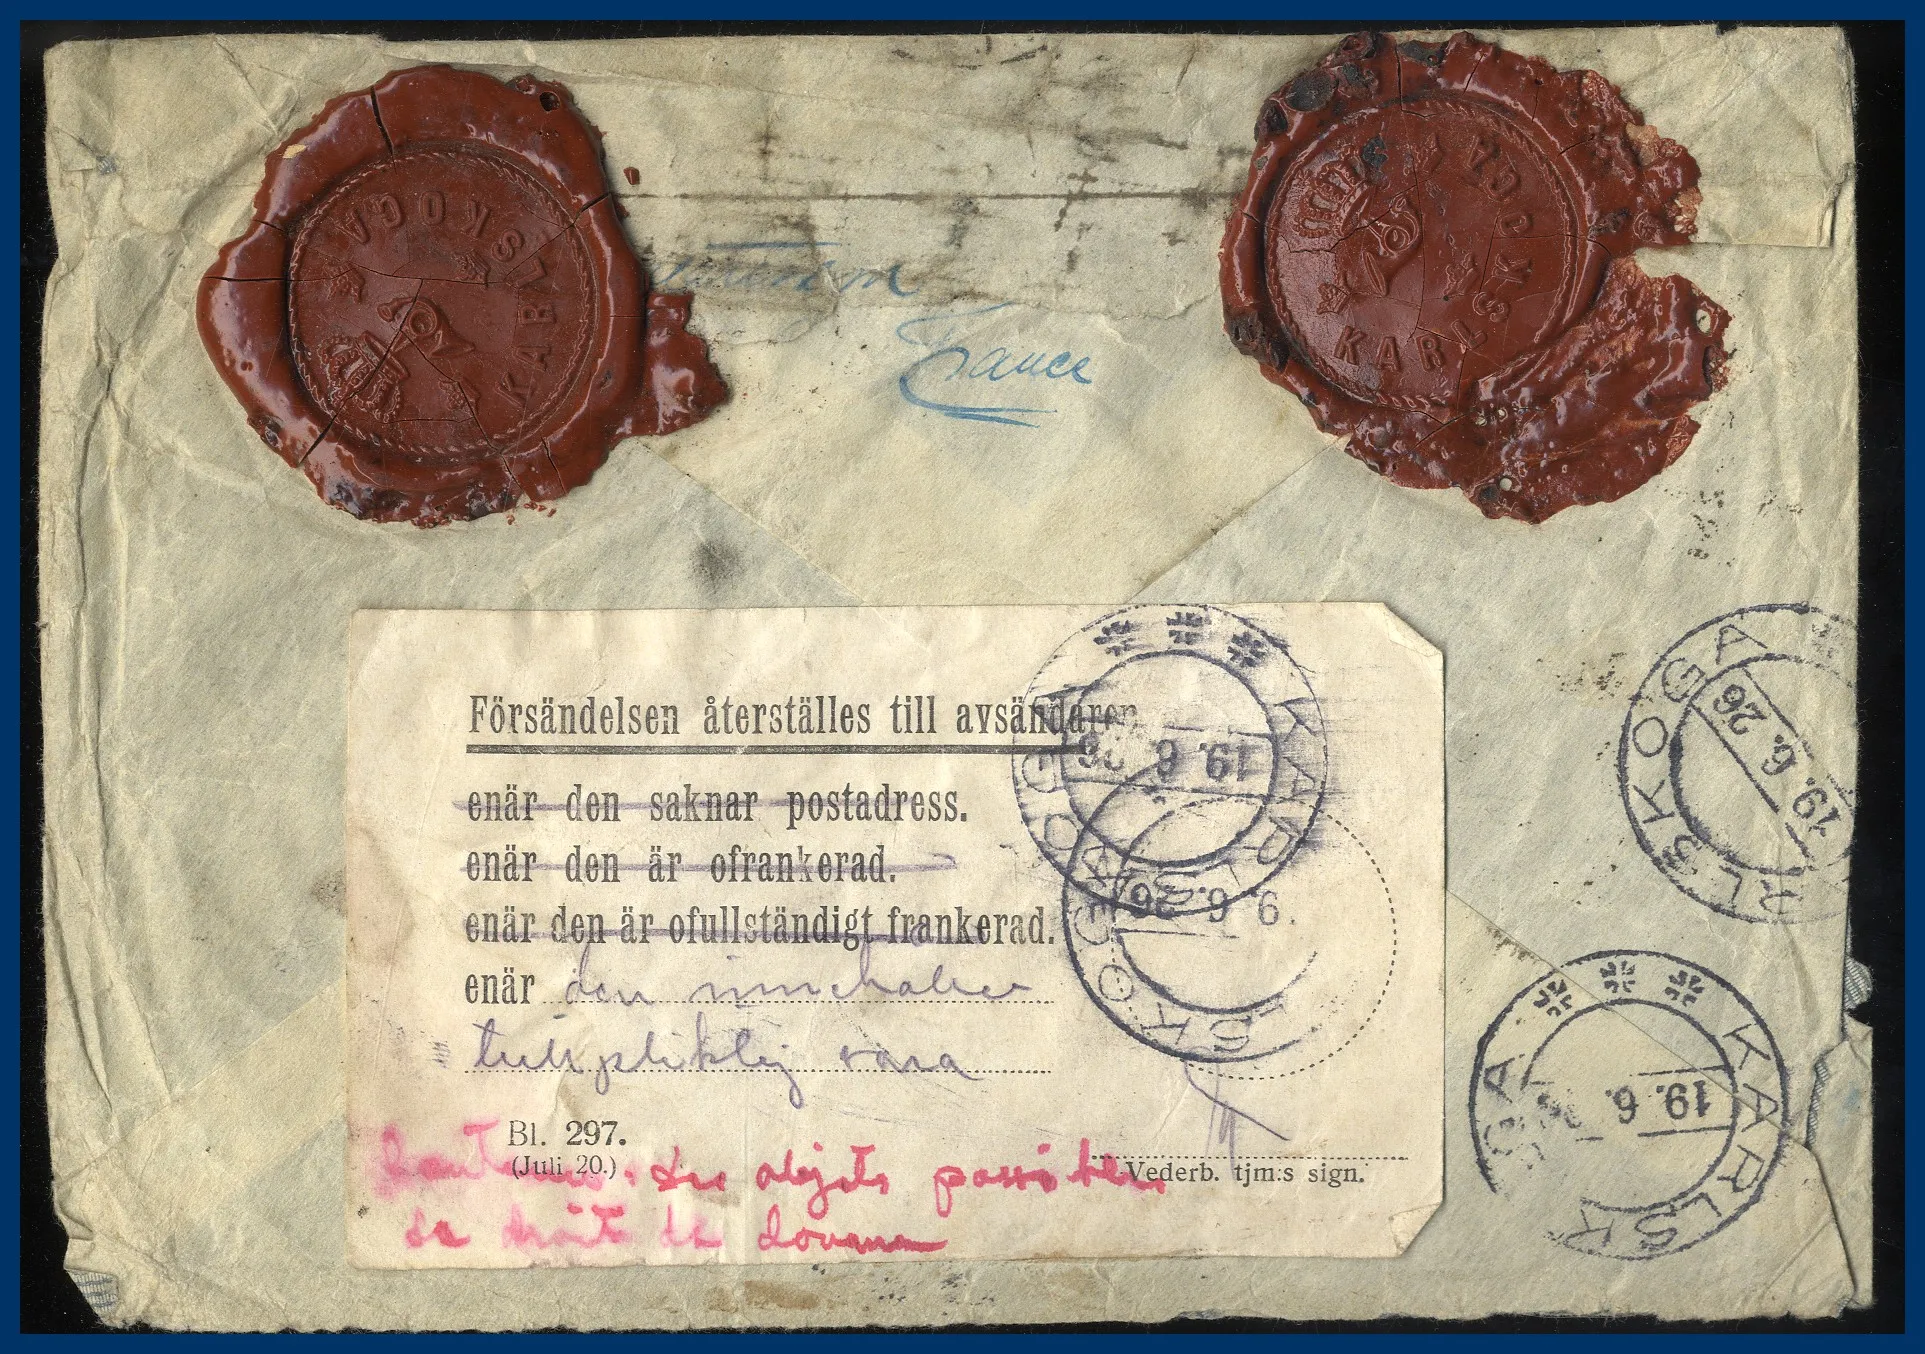 KARLSKOGA
KARLSKOGA
France
Försändelsen återställes till avsändaren
enär den saknar postadress.
enär den är ofrankerad.
enär den är ofullständigt frankerad.
enär den innehåller
tullpliktig vara
Bl. 297.
(Juli 20.)
Vederb. tjm:s sign.
des objets possibles
de droits de douane
KARLSKOGA
19. 6. 26
KARLSKOGA
19. 6. 26
KARLSKOGA
19. 6.